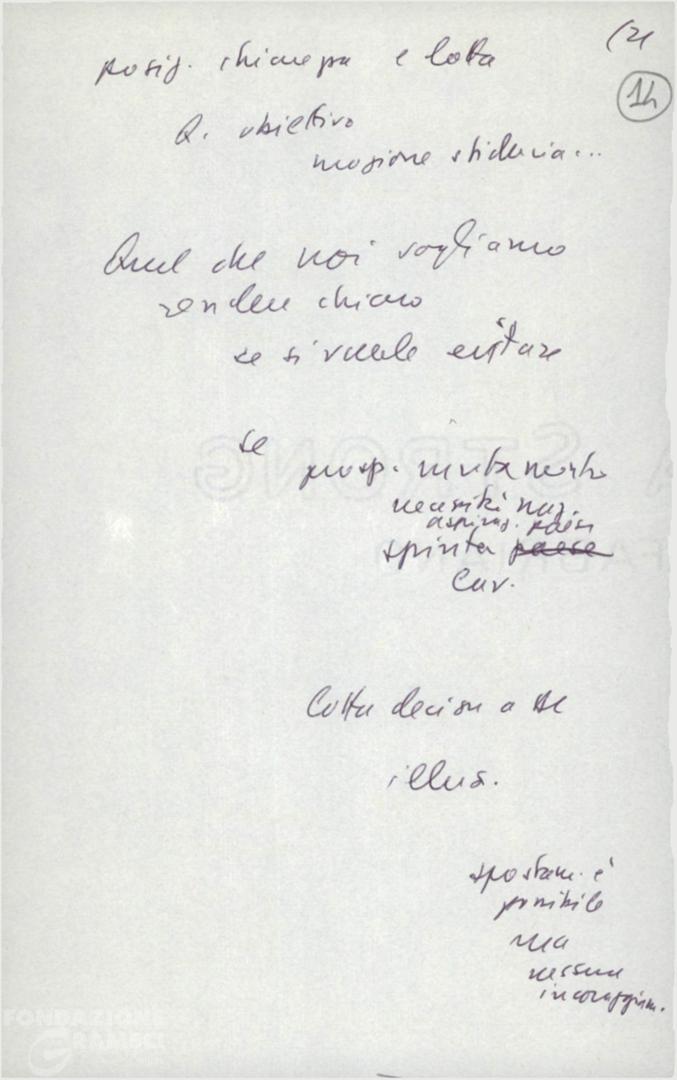 (21
14
posiz. chiarezza e lotta
Q. obiettivo
mozione sfiducia...
Quel che noi vogliamo
rendere chiaro
se si vuole evitare
se
prosp. mutamento
necessità naz.
aspiraz. paesi
spinta paese
lav.
Lotta decisa a
illus.
spostam. è
possibile
ma
nessun
incoraggiam.
FONDAZIONE
GRAMSCI